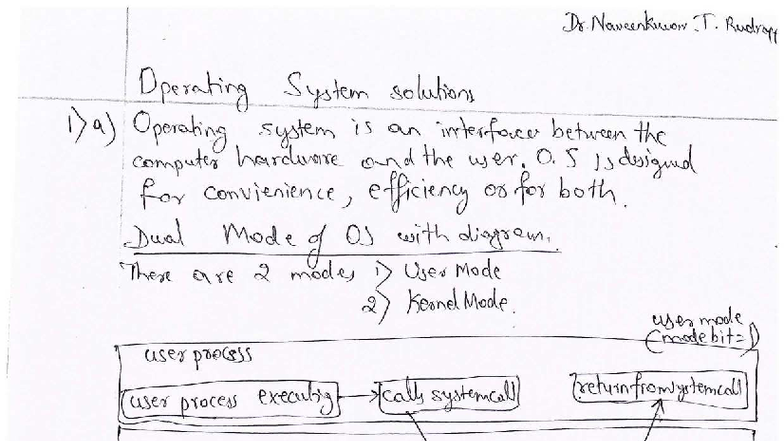 Dr. Naveenkumar. T. Rudrapp
Operating System solutions
1> a) Operating system is an interface between the
computer hardware and the user. O.S is designed
for convienience, efficiency or for both.
Dual Mode of OS with diagram.
There are 2 modes 1> User Mode
2> Kernel Mode.
user mode
(mode bit=1)
user process
user process executig → calls system call return from system call